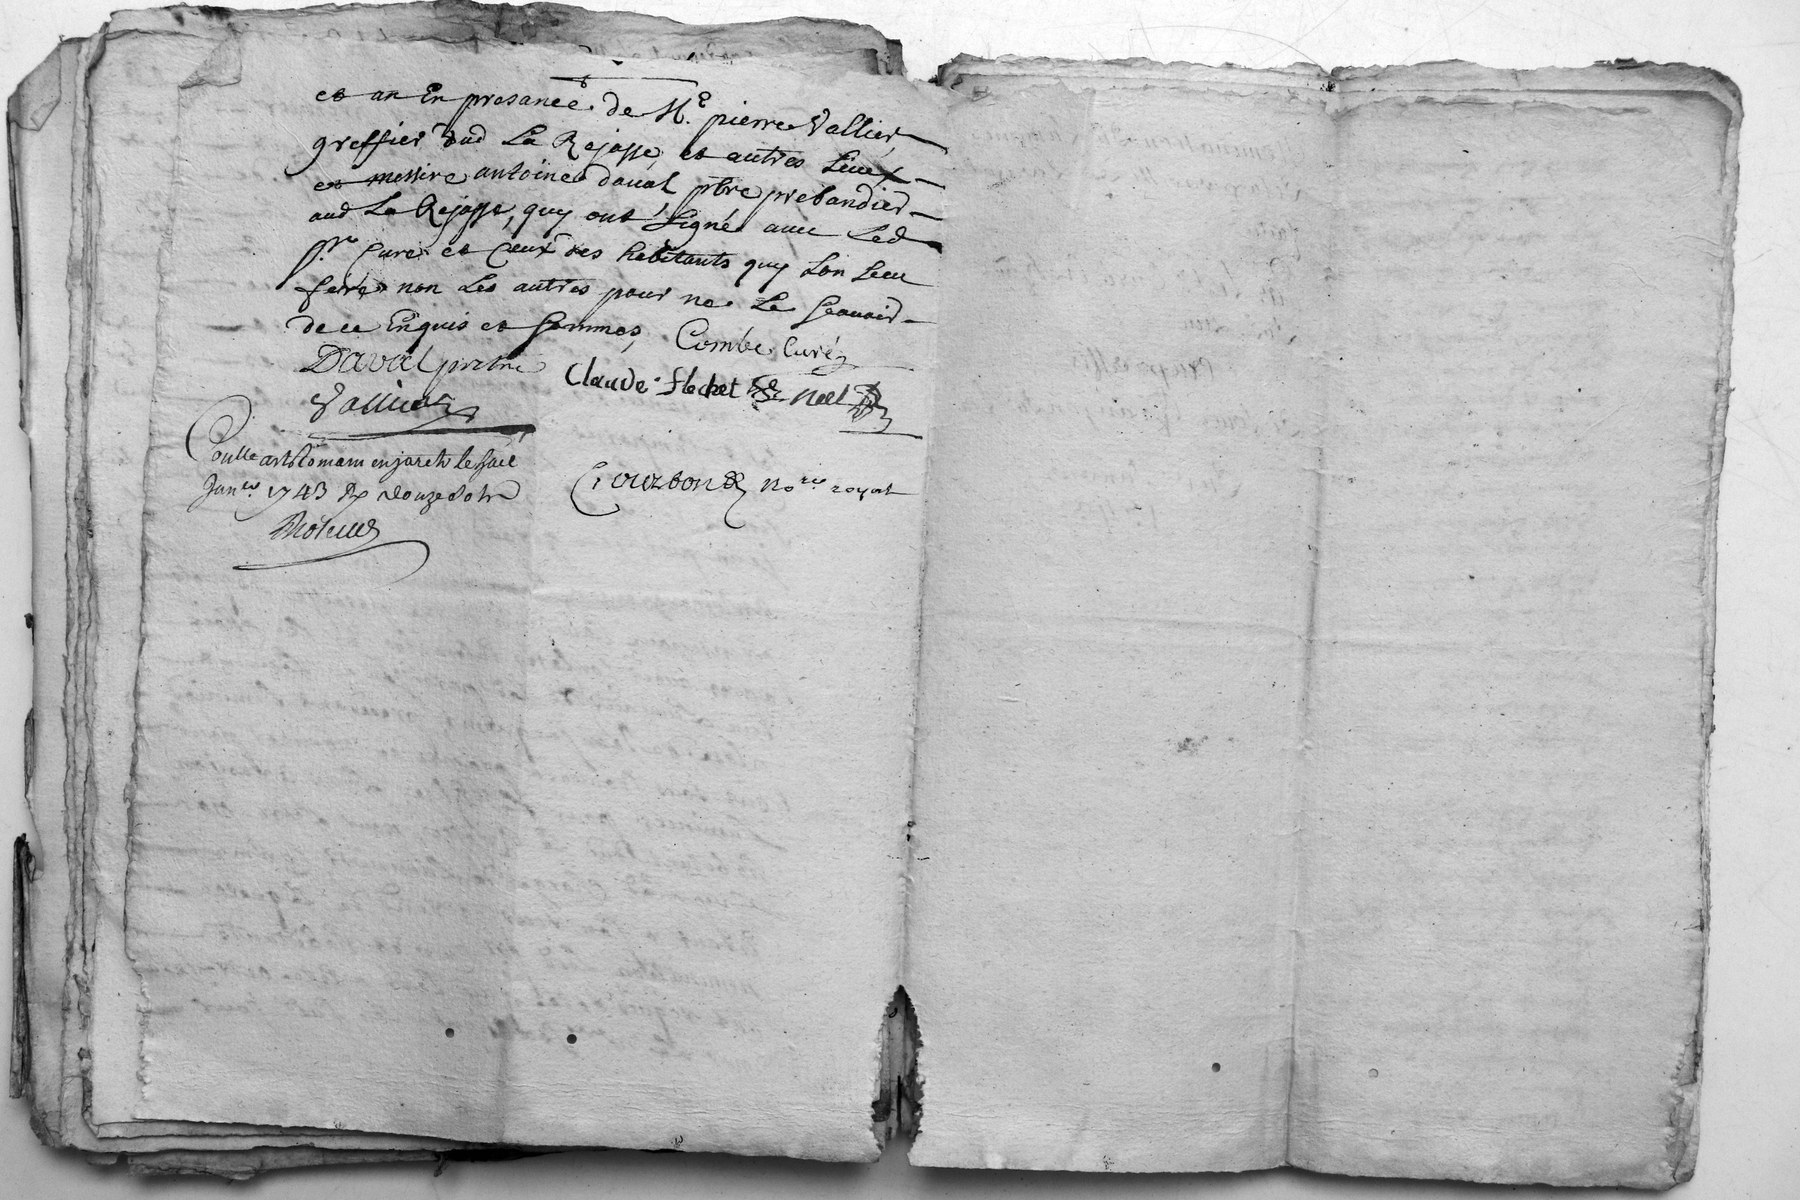 et an En presance de Mr. pierre Vallier
greffier dud La Rejasse, et autres Lieux
et messire antoine daval ptre prebandier
aud La Rejasse, quy ont signé avec Led
sr. Curé et Ceux des habitants quy Lon sceu
feire non Les autres pour ne Le scavoir
de ce Enquis et sommes, Combe Curé
Daval pretre
Claude flechet noel
Vallier
Conlle a st Romain en jarets le
Janer. 1743 Rx douze sols
Courbon nore royal